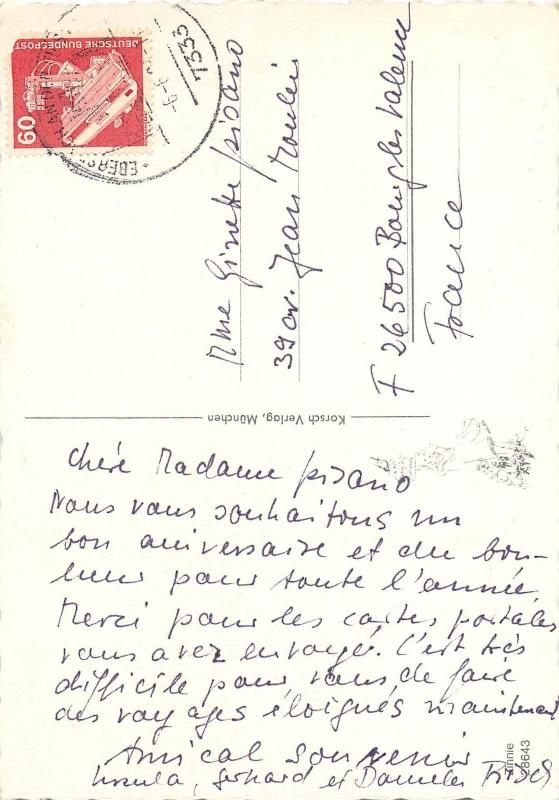 DEUTSCHE BUNDESPOST
60
7333
EBERS
-6.-6.
Mme Ginette Pisano
39 av. Jean Moulin
F 26500 Bourg les Valence
France
Korsch Verlag, München
Chère Madame Pisano
Nous vous souhaitons un
bon aniversaire et du bon-
heur pour toute l'année.
Merci pour les cartes postales
vous avez envoyé. C'est très
difficile pour vous de faire
des voyages éloignés maintenant
Amical souvenir
Ursula, Gerhard et Daniela
Minnie
28643